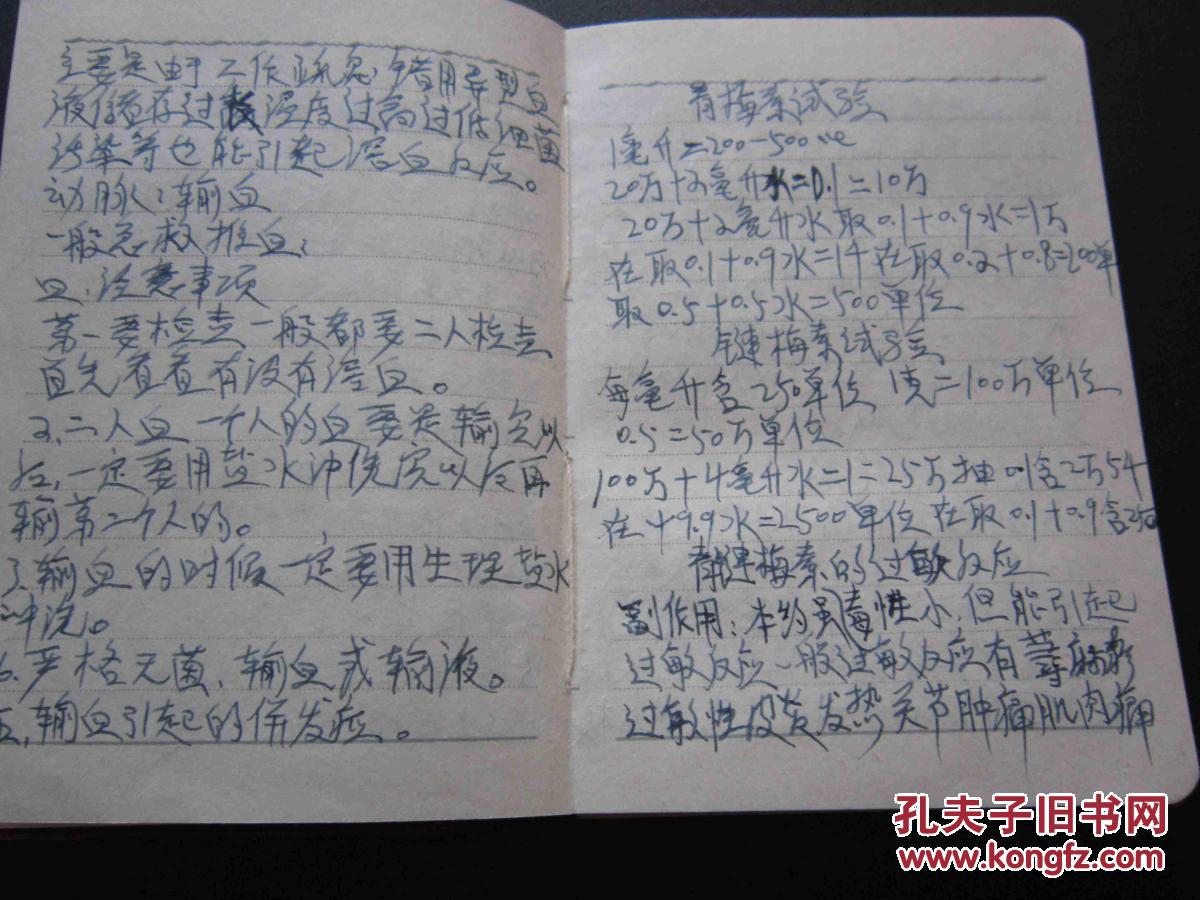 主要是由于工作疏忽,错用异型血
液储存过长湿度过高过低细菌
污染等也能引起溶血反应。
动脉:输血
一般急救推血:
四、注意事项
第一要检查一般都要二人检查
首先看看有没有溶血。
2、二人血一个人的血要是输完以
后,一定要用盐水冲洗完以后再
输第二个人的。
3、输血的时候一定要用生理盐水
冲洗。
6、严格无菌、输血或输液。
五、输血引起的併发症。
青梅素试验
1毫升=200-500
20万+2毫升水=0.1=10万
20万+2毫升水取0.1+0.9水=1万
在取0.1+0.9水=1千在取0.2+0.8=200单
取0.5+0.5水=500单位
链梅素试验
每毫升含250单位 1克=100万单位
0.5=50万单位
100万+4毫升水=1=25万抽0.1含2万5千
在+9.9水=2500单位在取0.1+0.9含250
青链梅素的过敏反应
副作用:本药虽毒性小,但能引起
过敏反应一般过敏反应有荨麻疹
过敏性皮炎发热关节肿痛肌肉痛
孔夫子旧书网
www.kongfz.com